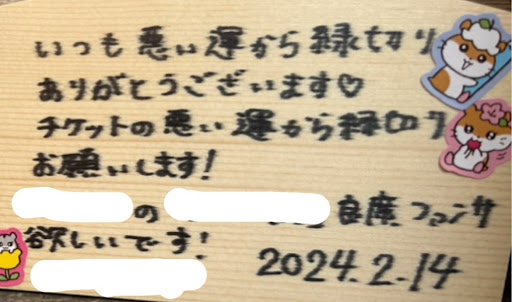 いつも悪い運から縁切り
ありがとうございます♡
チケットの悪い運から縁切り
お願いします！
の 良席 ファンサ
欲しいです！
2024.2.14